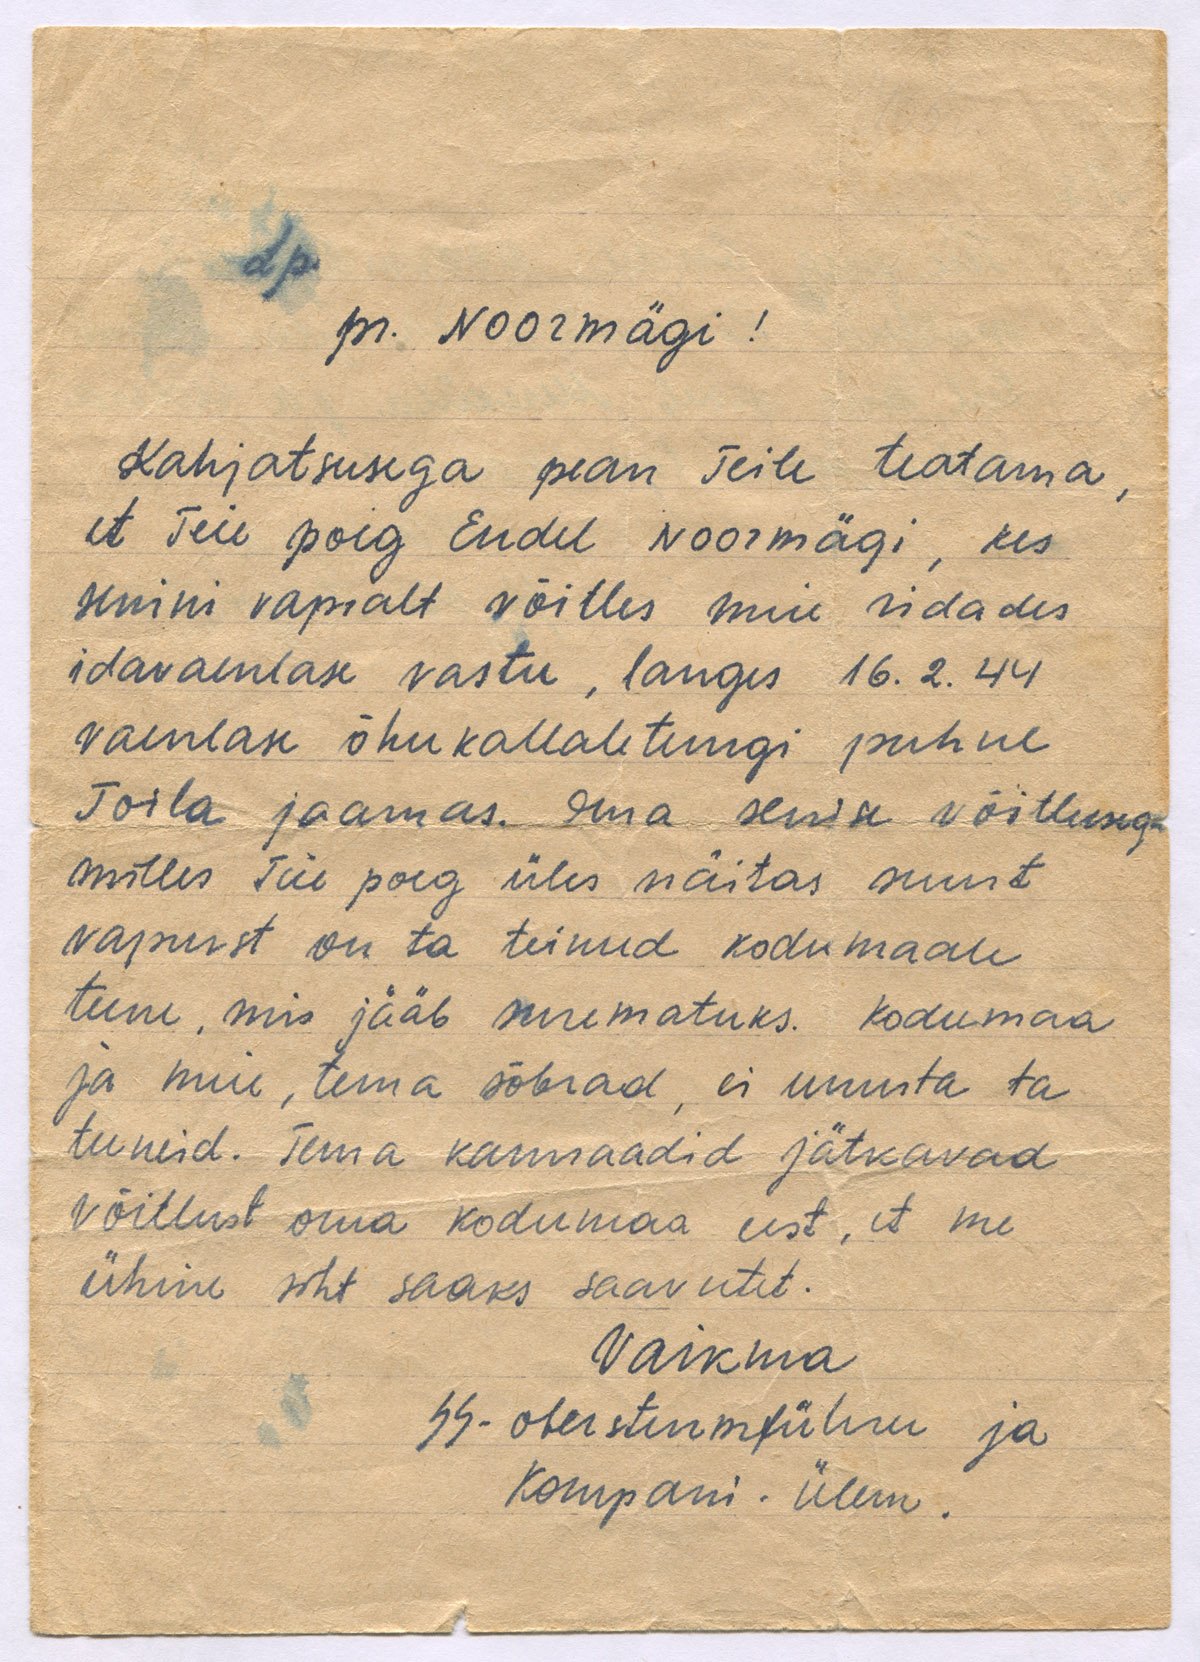 Lp.
pr. Noormägi!
Kahjatsusega pean Teile teatama,
et Teie poeg Endel Noormägi, kes
senini vapralt võitles meie ridades
idavaenlase vastu, langes 16. 2. 44
vaenlase õhukallaletungi puhul
Toila jaamas. Oma senise võitlusega
milles Teie poeg üles näitas suurt
vaprust on ta teinud kodumaale
teene, mis jääb surematuks. Kodumaa
ja meie, tema sõbrad, ei unusta ta
teeneid. Tema kamraadid jätkavad
võitlust oma kodumaa eest, et me
ühine siht saaks saavutet.
Vaikma
SS-obersturmführer ja
Kompani-ülem.